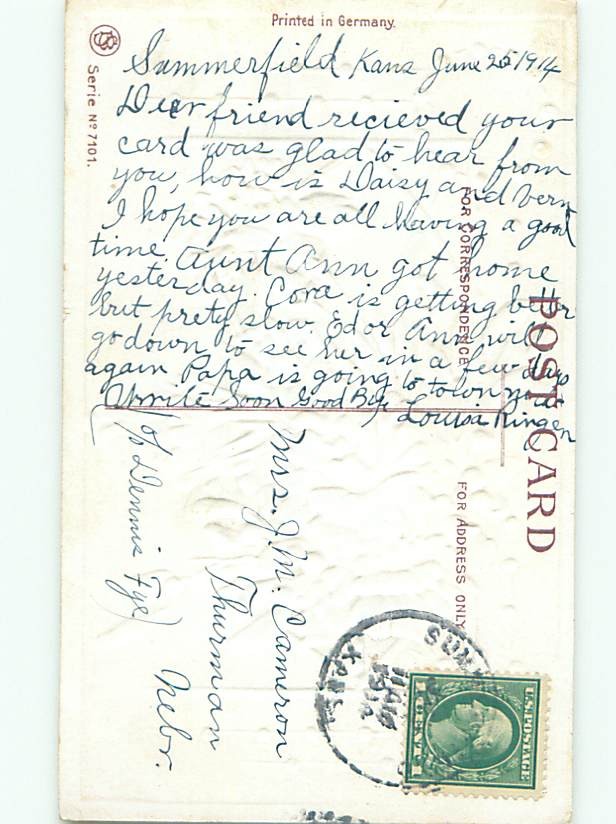 Printed in Germany.
Serie No 7101.
Summerfield Kans June 25 1914
Dear friend recieved your
card was glad to hear from
you, how is Daisy and Vern
I hope you are all having a good
time. Aunt Ann got home
yesterday. Cora is getting better
but prety slow. Ed or Ann will
go down to see her in a few days
again Papa is going to town now
Write Soon Good Bye Louisa Ringen
POST CARD
FOR CORRESPONDENCE
FOR ADDRESS ONLY
Mrs. J. M. Cameron
Thurman
Nebr.
(c/o Dennis Fye)
KANS
U.S. POSTAGE